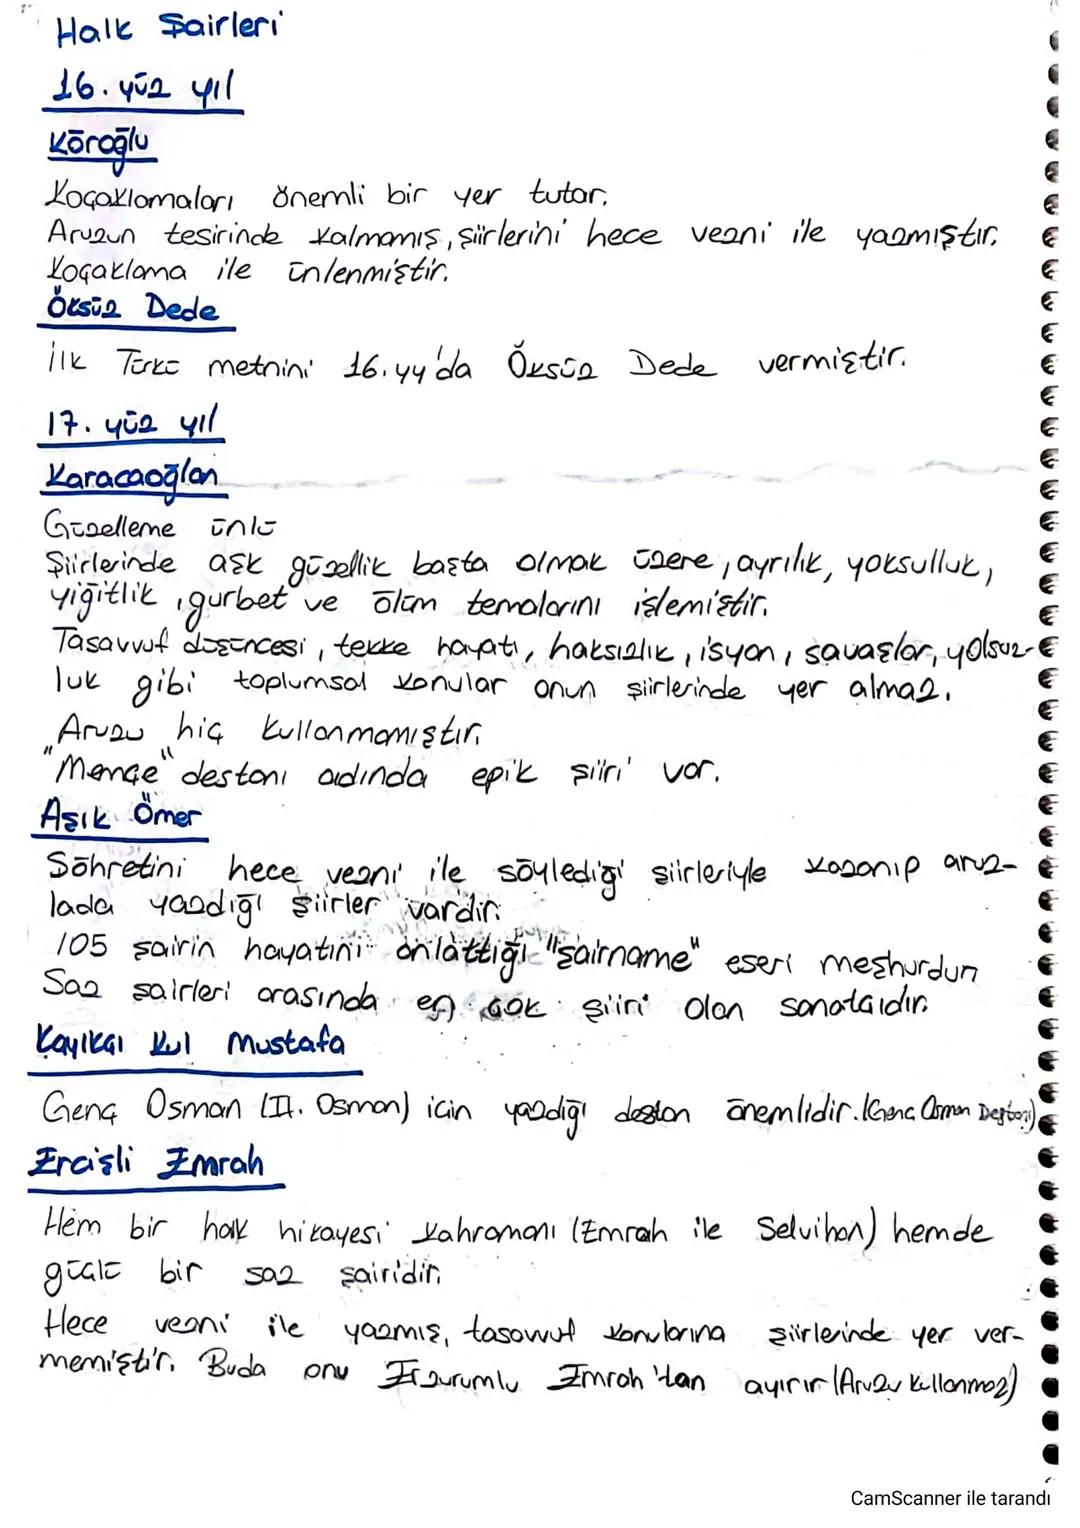 Halk Şairleri
16. yüz yıl
Köroğlu
Koçaklamaları önemli bir yer tutar.
Aruzun tesirinde kalmamış, şiirlerini hece vezni ile yazmıştır.
Koçaklama ile ünlenmiştir.
Öksüz Dede
İlk Türkü metnini 16.yy'da Öksüz Dede vermiştir.
17. yüz yıl
Karacaoğlan
Güzelleme ünlü
Şiirlerinde aşk güzellik başta olmak üzere, ayrılık, yoksulluk,
yiğitlik, gurbet ve ölüm temalarını işlemiştir.
Tasavvuf düşüncesi, tekke hayatı, haksızlık, isyan, savaşlar, yolsuz-
luk gibi toplumsal konular onun şiirlerinde yer almaz.
Aruzu hiç kullanmamıştır.
"Mençe" destanı adında epik şiiri var.
Aşık Ömer
Şöhretini hece vezni ile söylediği şiirleriyle kazanıp aruz-
lada yazdığı şiirler vardır.
105 şairin hayatını anlattığı "şairname" eseri meşhurdur.
Saz şairleri arasında en çok şiiri olan sanatçıdır.
Kayıkçı Kul Mustafa
Genç Osman (II. Osman) için yazdığı destan önemlidir. (Genç Osman Destanı)
Ercişli Emrah
Hem bir halk hikayesi kahramanı (Emrah ile Selvihan) hemde
güçlü bir saz şairidir.
Hece vezni ile yazmış, tasavvuf konularına şiirlerinde yer ver-
memiştir. Buda onu Erzurumlu Emrah'tan ayırır (Aruzu kullanmaz)
CamScanner ile tarandı